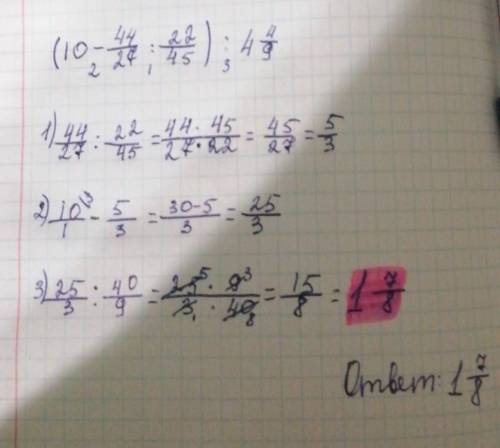 (10 - 44/27 : 22/45) : 4 4/9
2 1 3
1) 44/27 : 22/45 = 44 · 45/27 · 22 = 45/27 = 5/3
2) 10/1 ³ - 5/3 = 30-5/3 = 25/3
3) 25/3 : 40/9 = 25 ⁵ · 9 ³/3 ₁ · 40 ₈ = 15/8 = 1 7/8
Ответ: 1 7/8